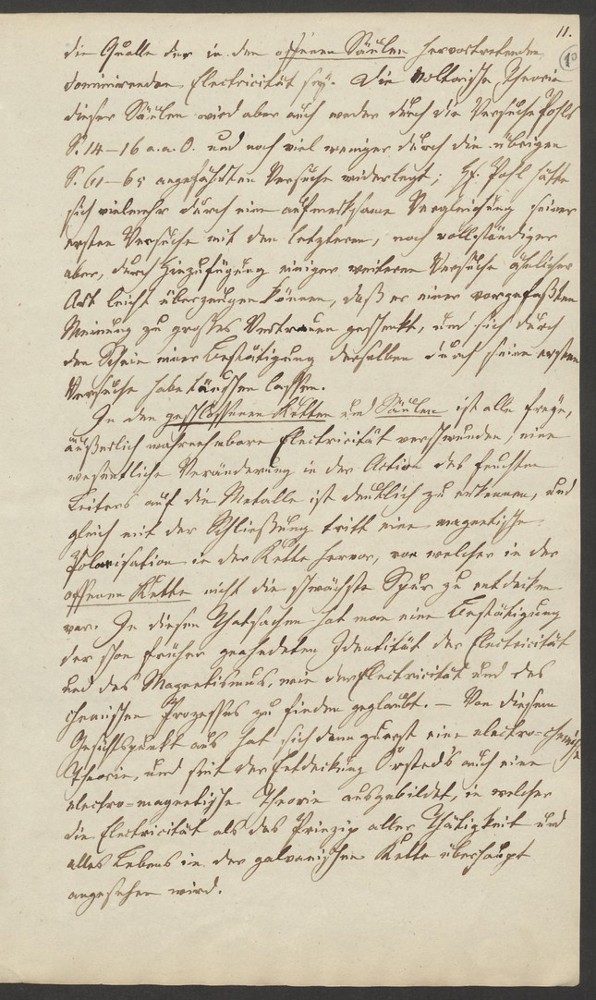 11.
10
die Quelle der in den offenen Säulen hervortretenden
dominirenden Electricität sey. Die Voltaische Theorie
dieser Säulen wird aber auch weder durch die Versuche Pohls
S. 14–16 a. a. O. und noch viel weniger durch die übrigen
S. 61–65 angeführten Versuche widerlegt; H. Pohl hätte
sich vielmehr durch eine aufmerksame Vergleichung seiner
ersten Versuche mit den letzteren, noch vollständiger
aber, durch Hinzufügung einiger weiteren Versuche ähnlicher
Art leicht überzeugen können, daß er einer vorgefaßten
Meinung zu großes Vertrauen geschenkt, und sich durch
den Schein einer Bestätigung derselben durch seine ersten
Versuche habe täuschen lassen.
In den geschlossenen Ketten und Säulen ist alle freye,
äußerlich wahrnehmbare Electricität verschwunden; eine
wesentliche Veränderung in der Action des feuchten
Leiters auf die Metalle ist deutlich zu erkennen, und
gleich mit der Schließung tritt eine magnetische
Polarisation in der Kette hervor, von welcher in der
offenen Kette nicht die schwächste Spur zu entdecken
war. In diesen Thatsachen hat man eine Bestätigung
der schon früher geahndeten Identität der Electricität
und des Magnetismus, wie der Electricität und des
chemischen Prozesses zu finden geglaubt. – Von diesem
Gesichtspunkt aus hat sich denn zuerst eine electro=chemische
Theorie, und seit der Entdeckung Örsteds auch eine
electro=magnetische Theorie ausgebildet, in welcher
die Electricität als das Prinzip aller Thätigkeit und
alles Lebens in der galvanischen Kette überhaupt
angesehen wird.